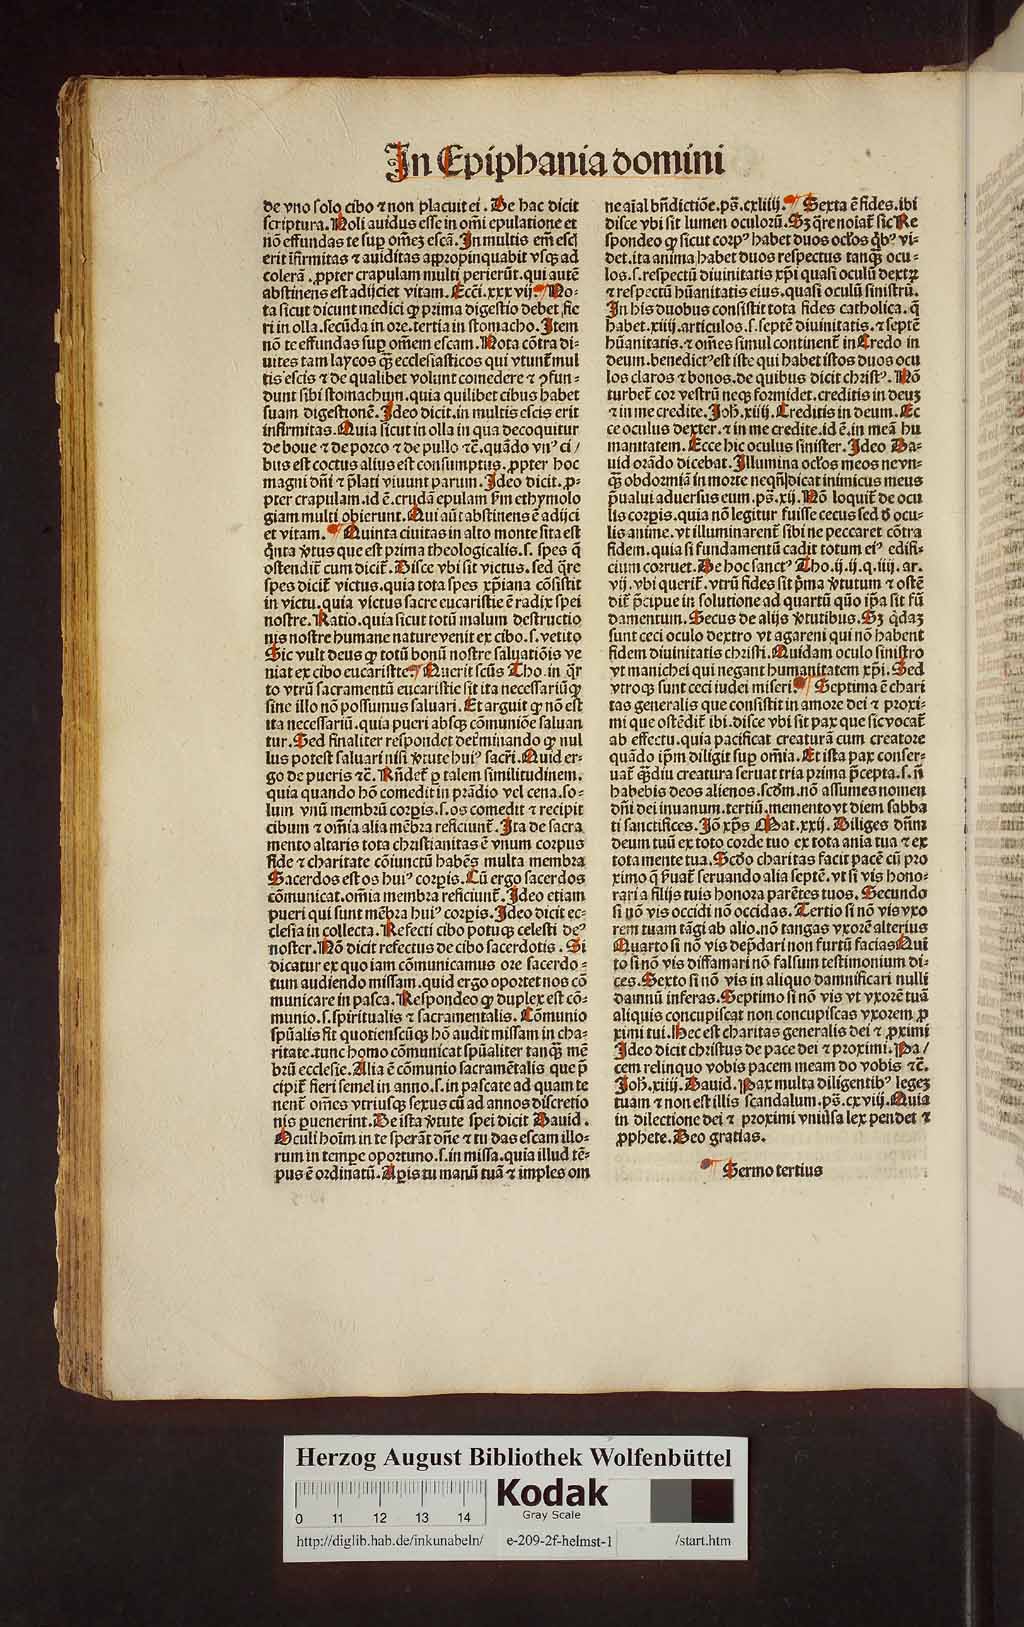 In Epiphania domini
de vno solo cibo ⁊ non placuit ei. De hac dicit
scriptura. Noli auidus esse in om̄i epulatione et
nō effundas te suꝑ omēꝫ escā. In multis em̄ escꝭ
erit īfirmitas ⁊ auiditas appropinquabit vsqꝫ ad
colerā. ꝓpter crapulam multi perierūt. qui autē
abstinens est adijciet vitam. Ecci. xxxvij. No-
ta sicut dicunt medici ꝙ prima digestio debet fie
ri in olla. secūda in ore. tertia in stomacho. Item
nō te effundas suꝑ omēm escam. Nota cōtra di-
uites tam laycos qȝ̄ ecclesiasticos qui vtunt̄ mul
tis escis ⁊ de qualibet volunt comedere ⁊ ꝯfun-
dunt sibi stomachum. quia quilibet cibus habet
suam digestionē. Ideo dicit. in multis escis erit
infirmitas. Quia sicut in olla in qua decoquitur
de boue ⁊ de porco ⁊ de pullo ⁊c̄. quādo vnꝰ ci/
bus est coctus alius est consumptus. ꝓpter hoc
magni dn̄i ⁊ p̄lati viuunt parum. Ideo dicit. ꝓ-
pter crapulam. id ē. crudā epulam ẜm ethymolo
giam multi obierunt. Qui aūt abstinens ē adijci
et vitam. Quinta ciuitas in alto monte sita est
q̄nta v̄tus que est prima theologicalis. s. spes q̄
ostendit̄ cum dicit̄. Disce vbi sit victus. sed q̄re
spes dicit̄ victus. quia tota spes xp̄iana cōsistit
in victu. quia victus sacre eucaristie ē radix spei
nostre. Ratio. quia sicut totū malum destructio
nis nostre humane nature venit ex cibo. s. vetito
Sic vult deus ꝙ totū bonū nostre saluatiōis ve
niat ex cibo eucaristie. Querit scūs Tho. in q̄r
to vtrū sacramentū eucaristie sit ita necessariū ꝙ
sine illo nō possumus saluari. Et arguit ꝙ nō est
ita necessariū. quia pueri absqꝫ cōmuniōe saluan
tur. Sed finaliter respondet det̄minando ꝙ nul
lus potest saluari nisi v̄tute huiꝰ sacr̄i. Quid er-
go de pueris ⁊c̄. Rn̄det ꝑ talem similitudinem.
quia quando hō comedit in prādio vel cena. so-
lum vnū membrū corpꝭ. s. os comedit ⁊ recipit
cibum ⁊ om̄ia alia mēbra reficiunt̄. Ita de sacra
mento altaris tota christianitas ē vnum corpus
fide ⁊ charitate cōiunctū habēs multa membra
Sacerdos est os huiꝰ corpꝭ. Cū ergo sacerdos
cōmunicat. om̄ia membra reficiunt̄. Ideo etiam
pueri qui sunt mēbra huiꝰ corpꝭ. Ideo dicit ec-
clesia in collecta. Refecti cibo potuqꝫ celesti deꝰ
noster. Nō dicit refectus de cibo sacerdotis. Si
dicatur ex quo iam cōmunicamus ore sacerdo-
tum audiendo missam. quid ergo oportet nos cō
municare in pasca. Respondeo ꝙ duplex est cō-
munio. s. spiritualis ⁊ sacramentalis. Cōmunio
spūalis fit quotienscūqꝫ hō audit missam in cha-
ritate. tunc homo cōmunicat spūaliter tanqȝ̄ mē
brū ecclesie. Alia ē cōmunio sacramētalis que p̄
cipit̄ fieri semel in anno. s. in pascate ad quam te
nent̄ omēs vtriusqꝫ sexus cū ad annos discretio
nis ꝑuenerint. De ista v̄tute spei dicit Dauid.
Oculi hoīm in te sperāt dn̄e ⁊ tu das escam illo-
rum in tempe oportuno. s. in missa. quia illud tē-
pus ē ordinatū. Apis tu manū tuā ⁊ imples om
ne aīal bn̄dictiōe. ps̄. cxliiij. Sexta ē fides. ibi
disce vbi sit lumen oculorū. Sꝫ q̄re noīat̄ sic Re
spondeo ꝙ sicut corpꝰ habet duos oclōs q̄bꝰ vi-
det. ita anima habet duos respectus tanqȝ̄ ocu-
los. s. respectū diuinitatis xp̄i quasi oculū dextꝝ
⁊ respectū hūanitatis eius. quasi oculū sinistrū.
In his duobus consistit tota fides catholica. q̄
habet. xiiij. articulos. s. septē diuinitatis. ⁊ septē
hūanitatis. ⁊ omēs simul continent̄ in Credo in
deum. benedictꝰ est iste qui habet istos duos ocu
los claros ⁊ bonos. de quibus dicit christꝰ. Nō
turbet̄ cor vestrū neqꝫ formidet. creditis in deuꝫ
⁊ in me credite. Joh̄. xiiij. Creditis in deum. Ec
ce oculus dexter. ⁊ in me credite. id ē. in meā hu
manitatem. Ecce hic oculus sinister. Ideo Da-
uid orādo dicebat. Illumina oclōs meos ne vn-
qȝ̄ obdormiā in morte neqn̄ dicat inimicus meus
p̄ualui aduersus eum. ps̄. xij. Nō loquit̄ de ocu
lis corpꝭ. quia nō legitur fuisse cecus sed d̄ ocu-
lis anime. vt illuminarent̄ sibi ne peccaret cōtra
fidem. quia si fundamentū cadit totum eiꝰ edifi-
cium corruet. De hoc sanctꝰ Tho. ij. ij. q. iiij. ar.
vij. vbi querit̄. vtrū fides sit p̄ma v̄tutum ⁊ ostē
dit̄ p̄cipue in solutione ad quartū qūo ip̄a sit fū
damentum. Secus de alijs v̄tutibus. Sꝫ q̄daꝫ
sunt ceci oculo dextro vt agareni qui nō habent
fidem diuinitatis christi. Quidam oculo sinistro
vt manichei qui negant humanitatem xp̄i. Sed
vtroqꝫ sunt ceci iudei miseri. Septima ē chari
tas generalis que consistit in amore dei ⁊ proxi-
mi que ostēdit̄ ibi. disce vbi sit pax que sic vocat̄
ab effectu. quia pacificat creaturā cum creatore
quādo ip̄m diligit suꝑ om̄ia. Et ista pax conser-
uat̄ qȝ̄diu creatura seruat tria prima p̄cepta. s. n̄
habebis deos alienos. scd̄m. nō assumes nomen
dn̄i dei inuanum. tertiū. memento vt diem sabba
ti sanctifices. Jō xp̄s Mat. xxij. Diliges dn̄m
deum tuū ex toto corde tuo ex tota anīa tua ⁊ ex
tota mente tua. Scd̄o charitas facit pacē cū pro
ximo q̄ ẜuat̄ seruando alia septē. vt si vis hono-
rari a filijs tuis honora parētes tuos. Secundo
si nō vis occidi nō occidas. Tertio si nō vis vxo
rem tuam tāgi ab alio. nō tangas vxorē alterius
Quarto si nō vis dep̄dari non furtū facias Qui
to si nō vis diffamari nō falsum testimonium di-
ces. Sexto si nō vis in aliquo damnificari nulli
damnū inferas. Septimo si nō vis vt vxorē tuā
aliquis concupiscat non concupiscas vxorem ꝓ
ximi tui. Hec est charitas generalis dei ⁊ ꝓximi
Ideo dicit christus de pace dei ⁊ proximi. Pa/
cem relinquo vobis pacem meam do vobis ⁊c̄.
Joh̄. xiiij. Dauid. Pax multa diligentibꝰ legeꝫ
tuam ⁊ non est illis scandalum. ps̄. cxviij. Quia
in dilectione dei ⁊ proximi vniūsa lex pendet ⁊
ꝓphete. Deo gratias.
Sermo tertius
Herzog August Bibliothek Wolfenbüttel
Kodak
Gray Scale
0 11 12 13 14
http://diglib.hab.de/inkunabeln/ e-209-2f-helmst-1 /start.htm